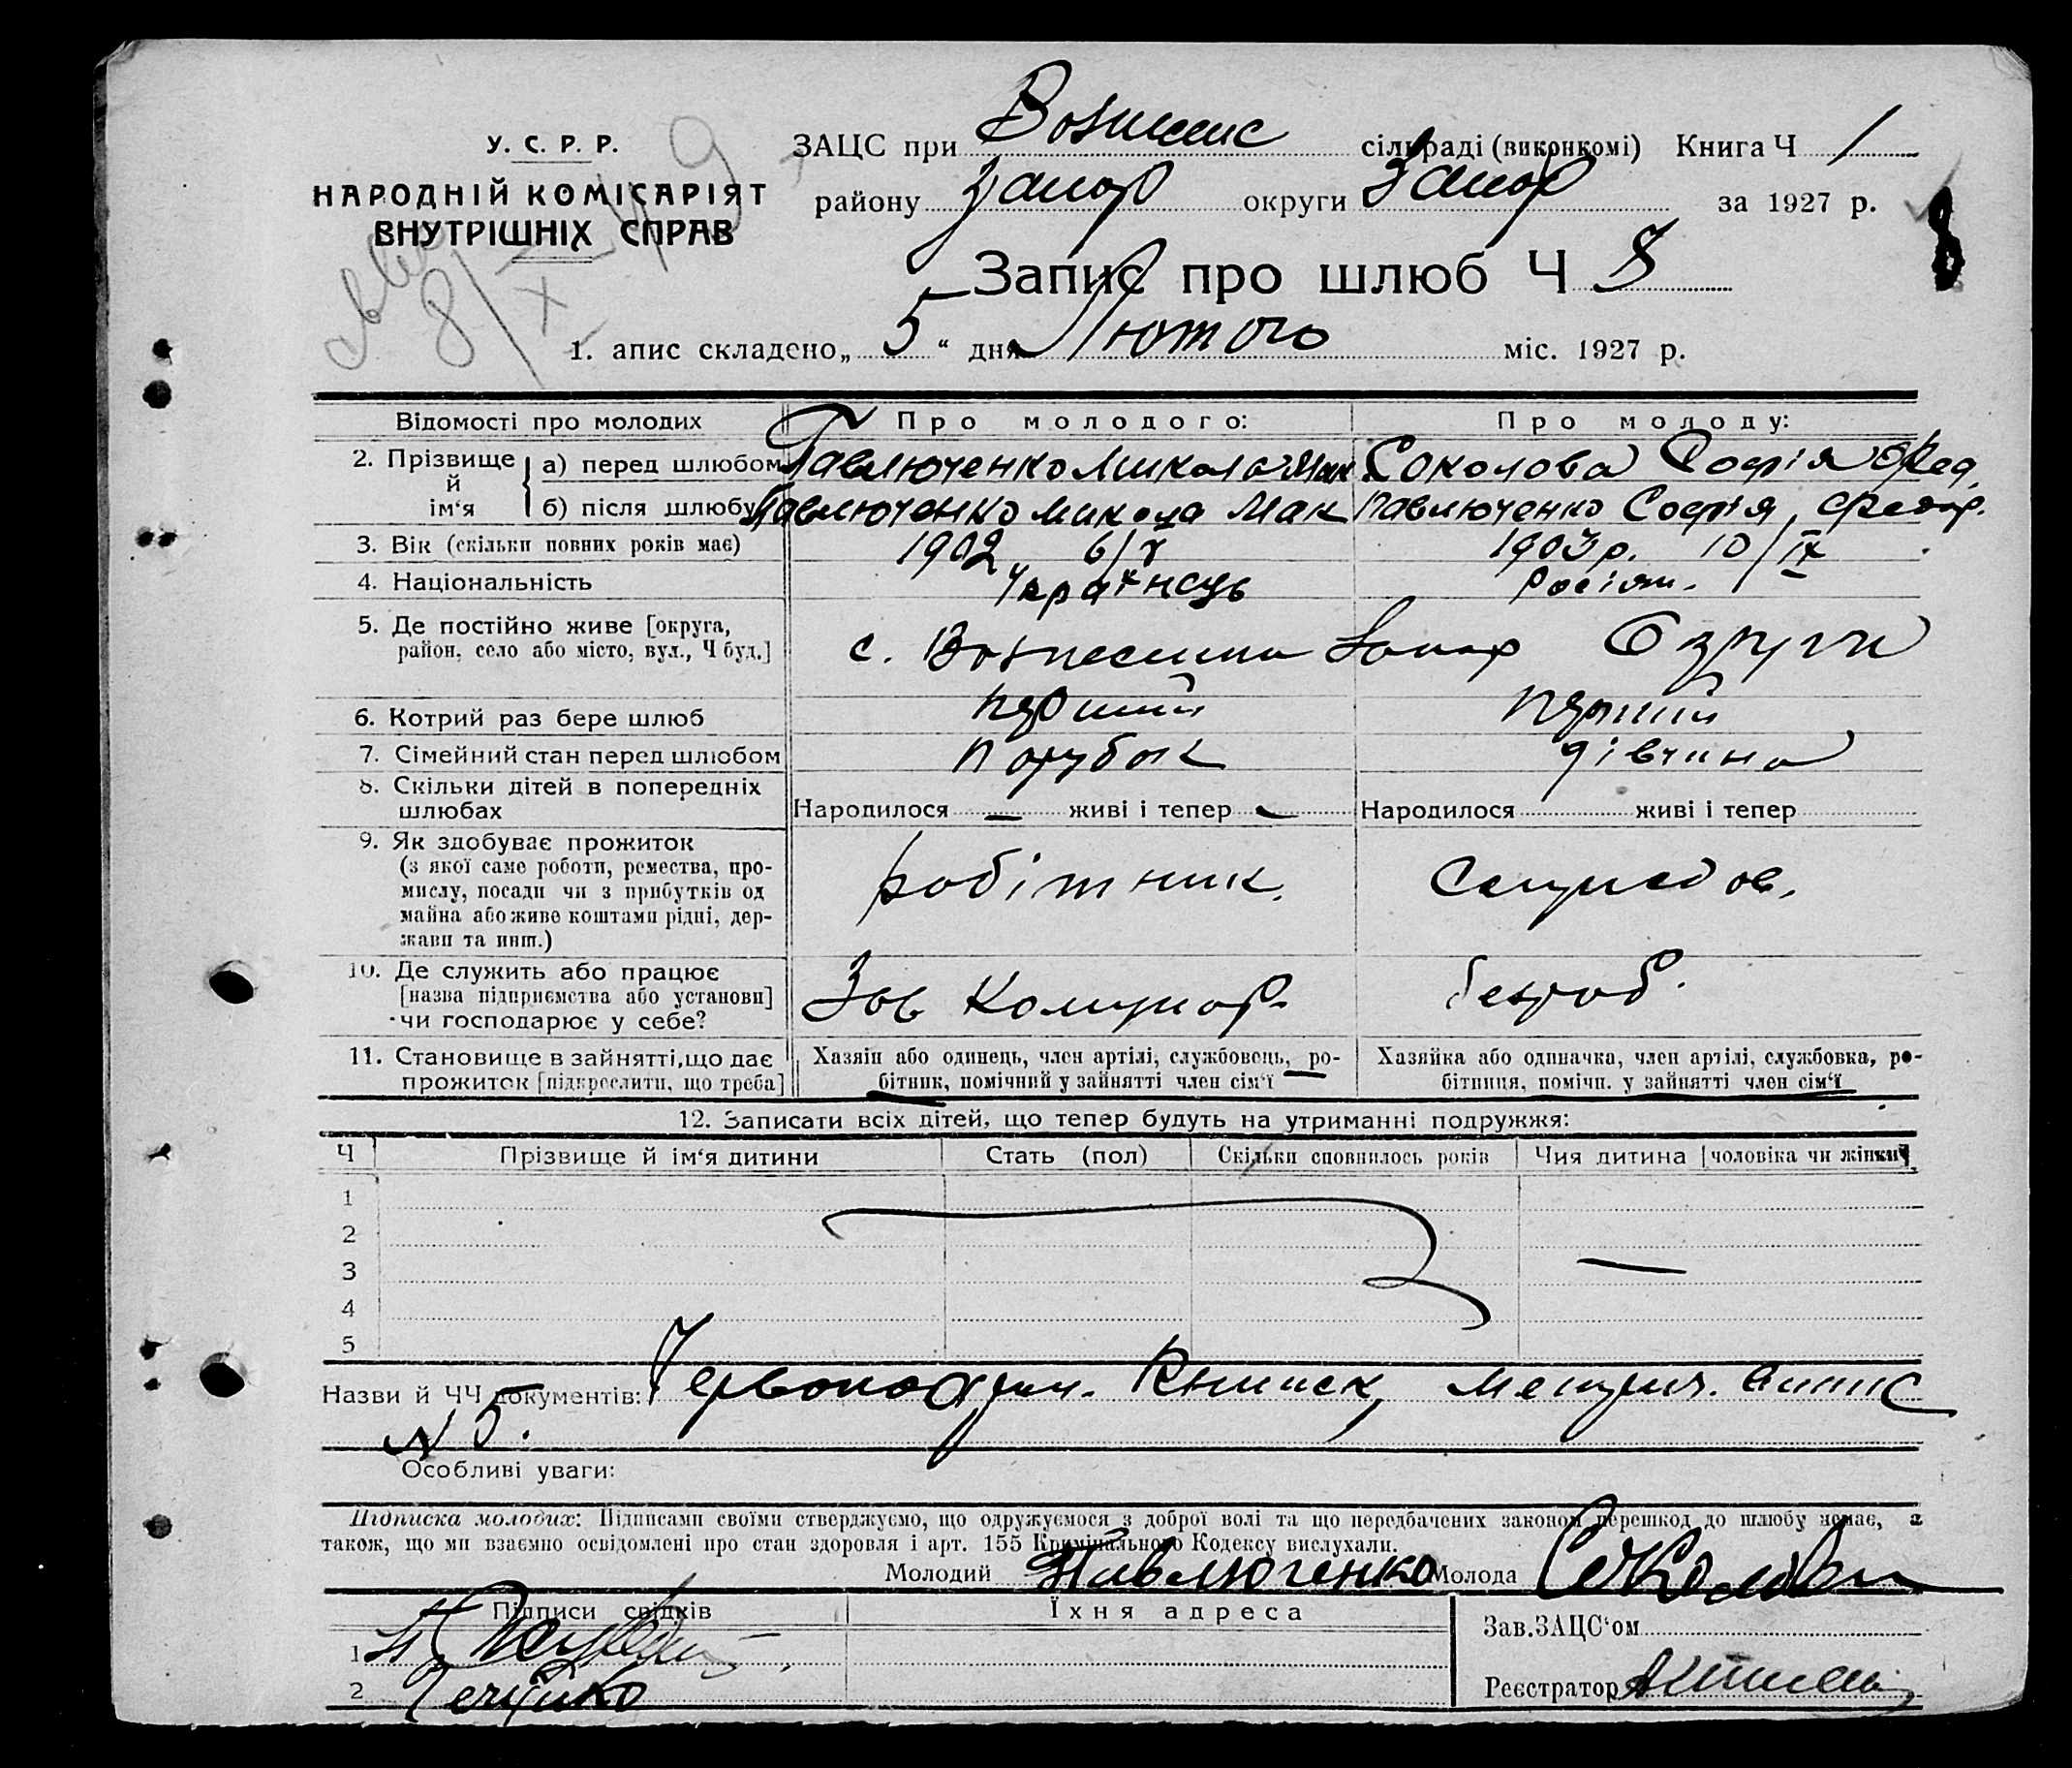 У. С. Р. Р.
НАРОДНІЙ КОМІСАРІЯТ
ВНУТРІШНІХ СПРАВ
ЗАЦС при сільраді (виконкомі) Книга Ч 1
району Запор округи Запор за 1927 р.
Запис про шлюб Ч 8
1. апис складено „ 5 “ дня Лютого міс. 1927 р.
Відомості про молодих Про молодого: Про молоду:
2. Прізвище й ім‘я а) перед шлюбом Павлюченко Микола Мак Соколова Софія Фед.
б) після шлюбу Павлюченко Микола Мак Павлюченко Софія Федор.
3. Вік (скільки повних років має) 1902 6/V 1903 р. 10/IX
4. Національність Українець Росіян.
5. Де постійно живе [округа,
район, село або місто, вул., Ч буд.] с. Вознесенка Запор Округи
6. Котрий раз бере шлюб перший перший
7. Сімейний стан перед шлюбом парубок дівчина
8. Скільки дітей в попередніх
шлюбах Народилося — живі і тепер — Народилося живі і тепер
9. Як здобуває прожиток
(з якої саме роботи, ремества, про-
мислу, посади чи з прибутків од
майна або живе коштами рідні, дер-
жави та инш.) робітник.
10. Де служить або працює
[назва підприємства або установи]
чи господарює у себе? Зав Комунар. безроб.
11. Становище в зайнятті, що дає
прожиток [підкреслити, що треба]
Хазяін або одинець, член артілі, службовець, ро-
бітник, помічний у зайнятті член сім‘ї
Хазяйка або одиначка, член артілі, службовка, ро-
бітниця, помічн. у зайнятті член сім‘ї
12. Записати всіх дітей, що тепер будуть на утриманні подружжя:
Ч Прізвище й ім‘я дитини Стать (пол) Скільки сповнилось років Чия дитина [чоловіка чи жінки]
1
2
3
4
5
Назви й ЧЧ документів: Червоноарм. Книжск,
N 5.
Особливі уваги:
Підписка молодих: Підписами своїми стверджуємо, що одружуємося з доброї волі та що передбачених законом перешкод до шлюбу немає, а
також, що ми взаємно освідомлені про стан здоровля і арт. 155 Кримінального Кодексу вислухали.
Молодий Павлюченко Молода Соколова
Підписи свідків Їхня адреса
Зав. ЗАЦС‘ом
1
2
Реєстратор